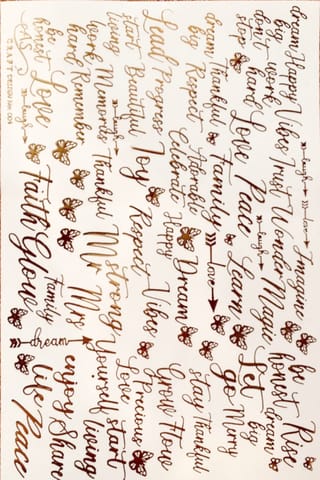 dream Happy Vibes Trust Wonder Magic honest Rise
big
don't work hard Love Peace
stop
laugh
Imagine be
laugh
Let dream big
go Merry
dream Thankful Family
love
Learn
big Respect Adorable
Celebrate Happy Dream
stay thankful
Lead Progress Joy Respect Vibes Grow
start Beautiful
living
laugh
work Memories Thankful Mr Mrs
hard Remember
strong Yourself start living
Love Precious
be honest Love
laugh
Faith Glow
Family
dream
enjoy Share
Life Peace